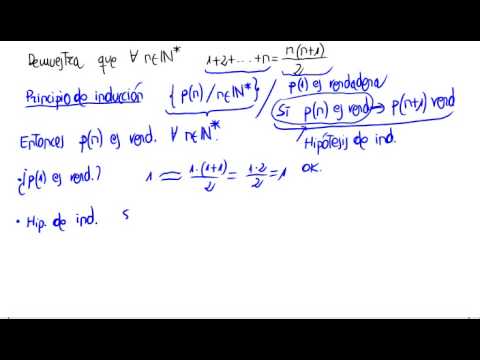 Demuestra que ∀ n∈ℕ* 1+2+...+n = n(n+1)/2
Principio de inducción {p(n)/n∈ℕ*} / p(1) es verdadera
Si p(n) es verd → p(n+1) verd
Hipótesis de ind.
Entonces p(n) es verd. ∀ n∈ℕ*.
·¿p(1) es verd.? 1 = 1·(1+1)/2 = 1·2/2 = 1 OK.
· Hip. de ind. S